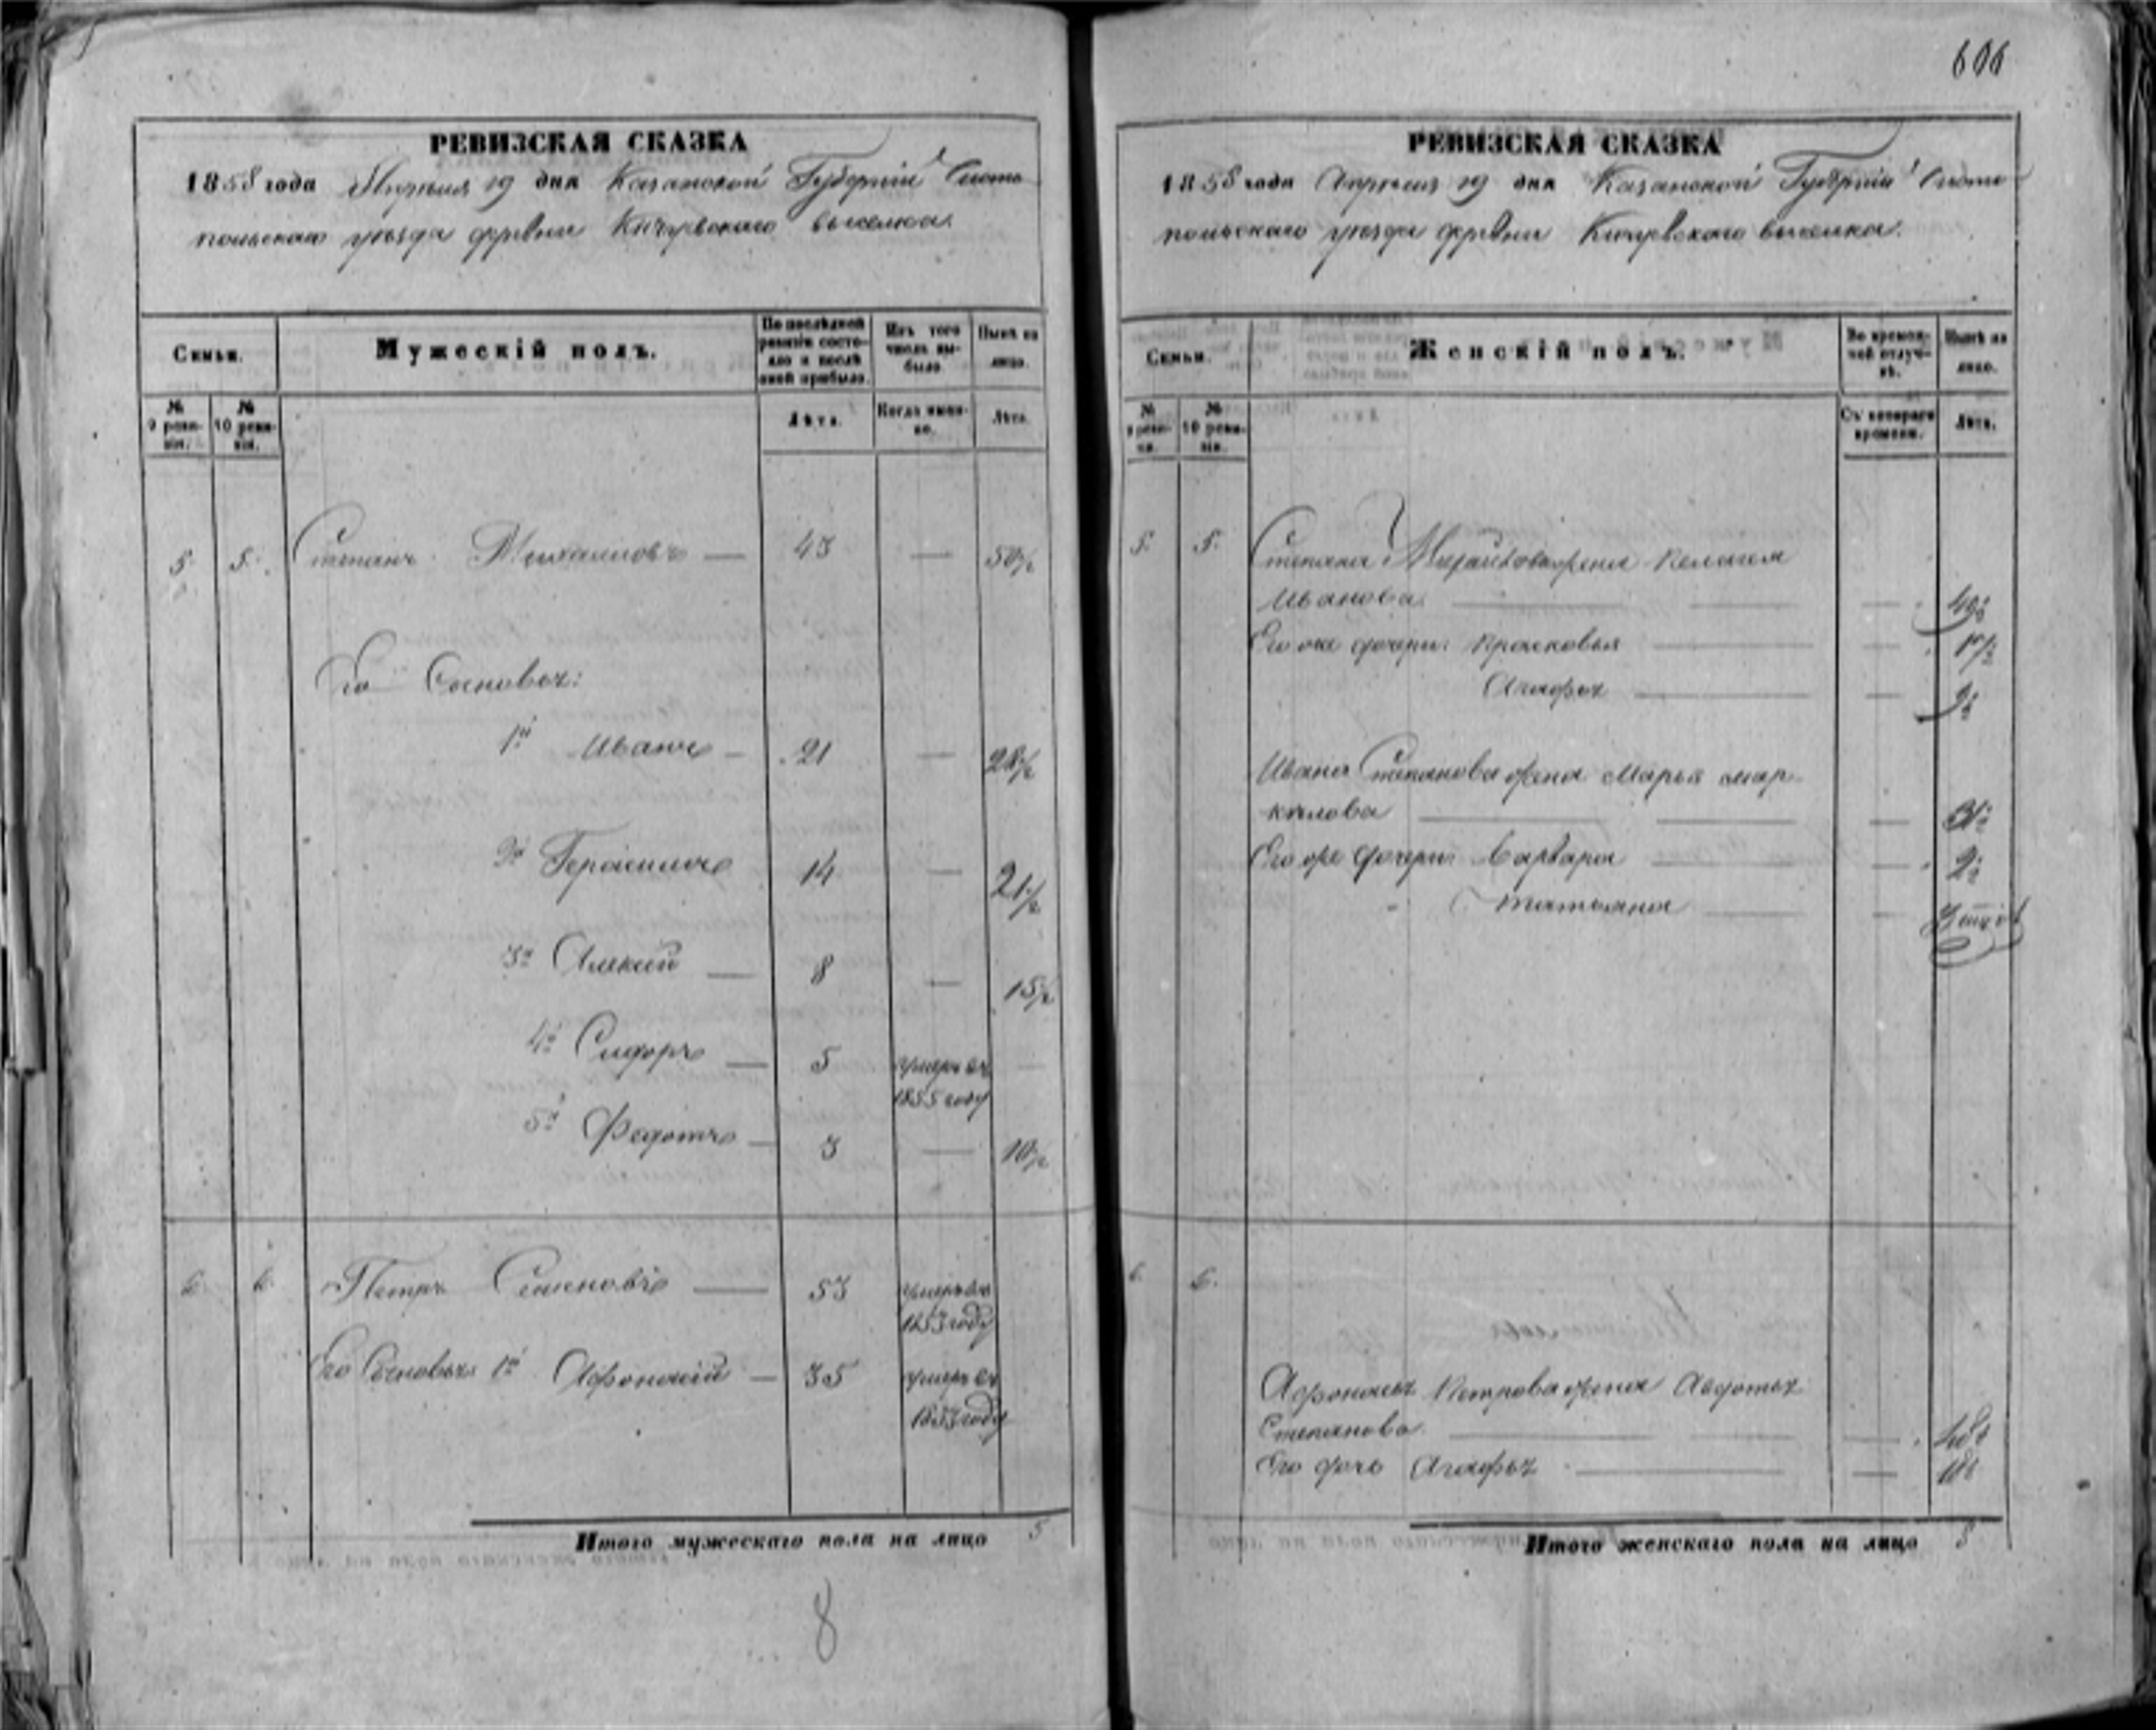 606
РЕВИЗСКАЯ СКАЗКА
1858 года Апреля 19 дня Казанской Губернии Чисто
польскаго уезда деревни Кичуевскаго выселка.
Семьи.
Мужескій полъ.
По послѣдней ревизіи состояло и послѣ оной прибыло.
Изъ того числа выбыло
Нынѣ на лицо.
№ 9 ревизіи.
№ 10 ревизіи.
Лѣта.
Когда именно.
Лѣта.
5. 5. Степанъ Михайловъ — 43 — 50½
Его Сыновья:
1й Иванъ — 21 — 28½
2й Герасимъ 14 — 21½
3й Алексей — 8 — 15½
4й Сидоръ — 5 умеръ въ —
1855 году
5й Федотъ — 3 — 10½
6. 6. Петръ Семеновъ — 53 умеръ въ
1853 году
Его Сыновья 1й Афонасий — 35 умеръ въ
1853 году
Итого мужескаго пола на лицо 5
8
РЕВИЗСКАЯ СКАЗКА
1858 года Апреля 19 дня Казанской Губернии Чисто
польскаго уезда деревни Кичуевскаго выселка.
Семьи.
Женскій полъ.
Во временной отлучкѣ.
Нынѣ на лицо.
№ 9 ревизіи.
№ 10 ревизіи.
Съ котораго времени.
Лѣта.
5. 5. Степана Михайлова жена Пелагея
Иванова —
Его же дочери: Прасковья —
Агафья —
Ивана Степанова жена Марья Мар
келова —
Его же дочери: Варвара —
Татьяна —
6. 6.
Афонасья Петрова жена Авдотья
Степанова —
Его дочь Агафья —
Итого женскаго пола на лицо 8